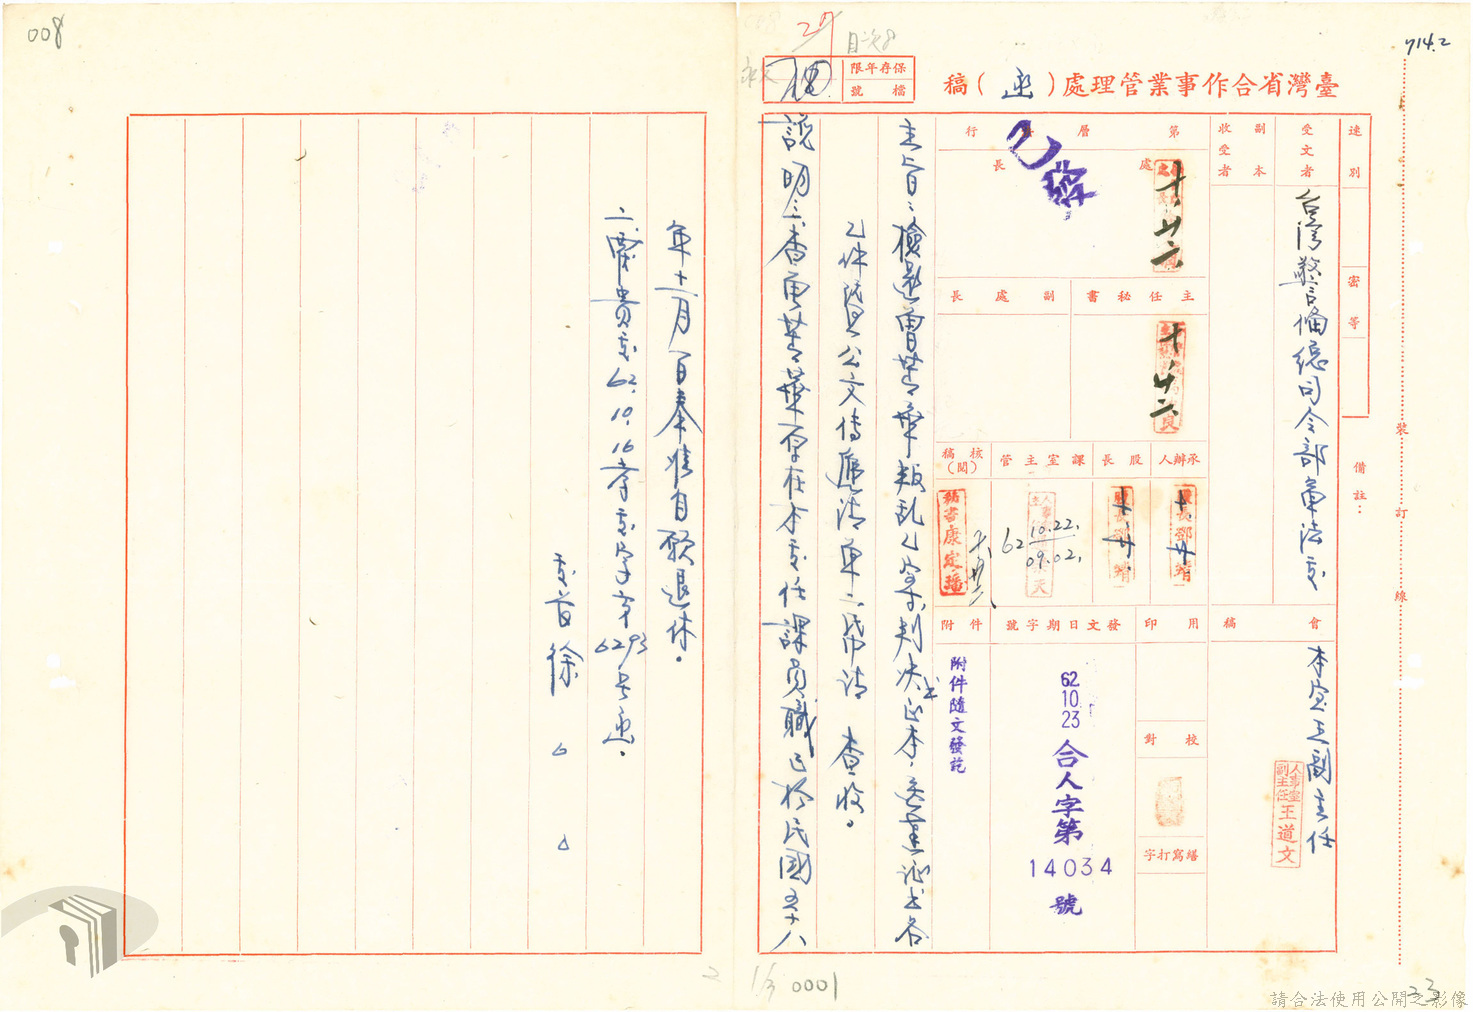 008
27
目次8
714.2
保存年限
檔號
臺灣省合作事業管理處（函）稿
速別
密等
備註：
裝
訂
線
受文者
台灣警備總司令部軍法處
副本收受者
會稿
本室王副主任
人事室副主任王道文
第 層 行
處長
十、廿六
已發
主任秘書
十、廿六
副處長
承辦人
股長鄧靖
十、廿
股長
股長鄧靖
十、廿
課室主管
62
10.22.
09.02.
核稿（閱）
秘書康定瑤
用印
校對
繕寫打字
發文日期字號
62
10
23
合人字第
14034
號
附件
附件隨文發訖
主旨：檢還曾菁華叛乱乙案判決書正本，送達證書各
乙件暨公文傳遞清單二帋請 查收。
說明：一、查曾菁華原在本處任課員職已於民國五十八
年十一月一日奉准自願退休。
二、復貴處62.10.16孝處字第6293號函。
處長徐
1/3
0001
2
33
請合法使用公開之影像